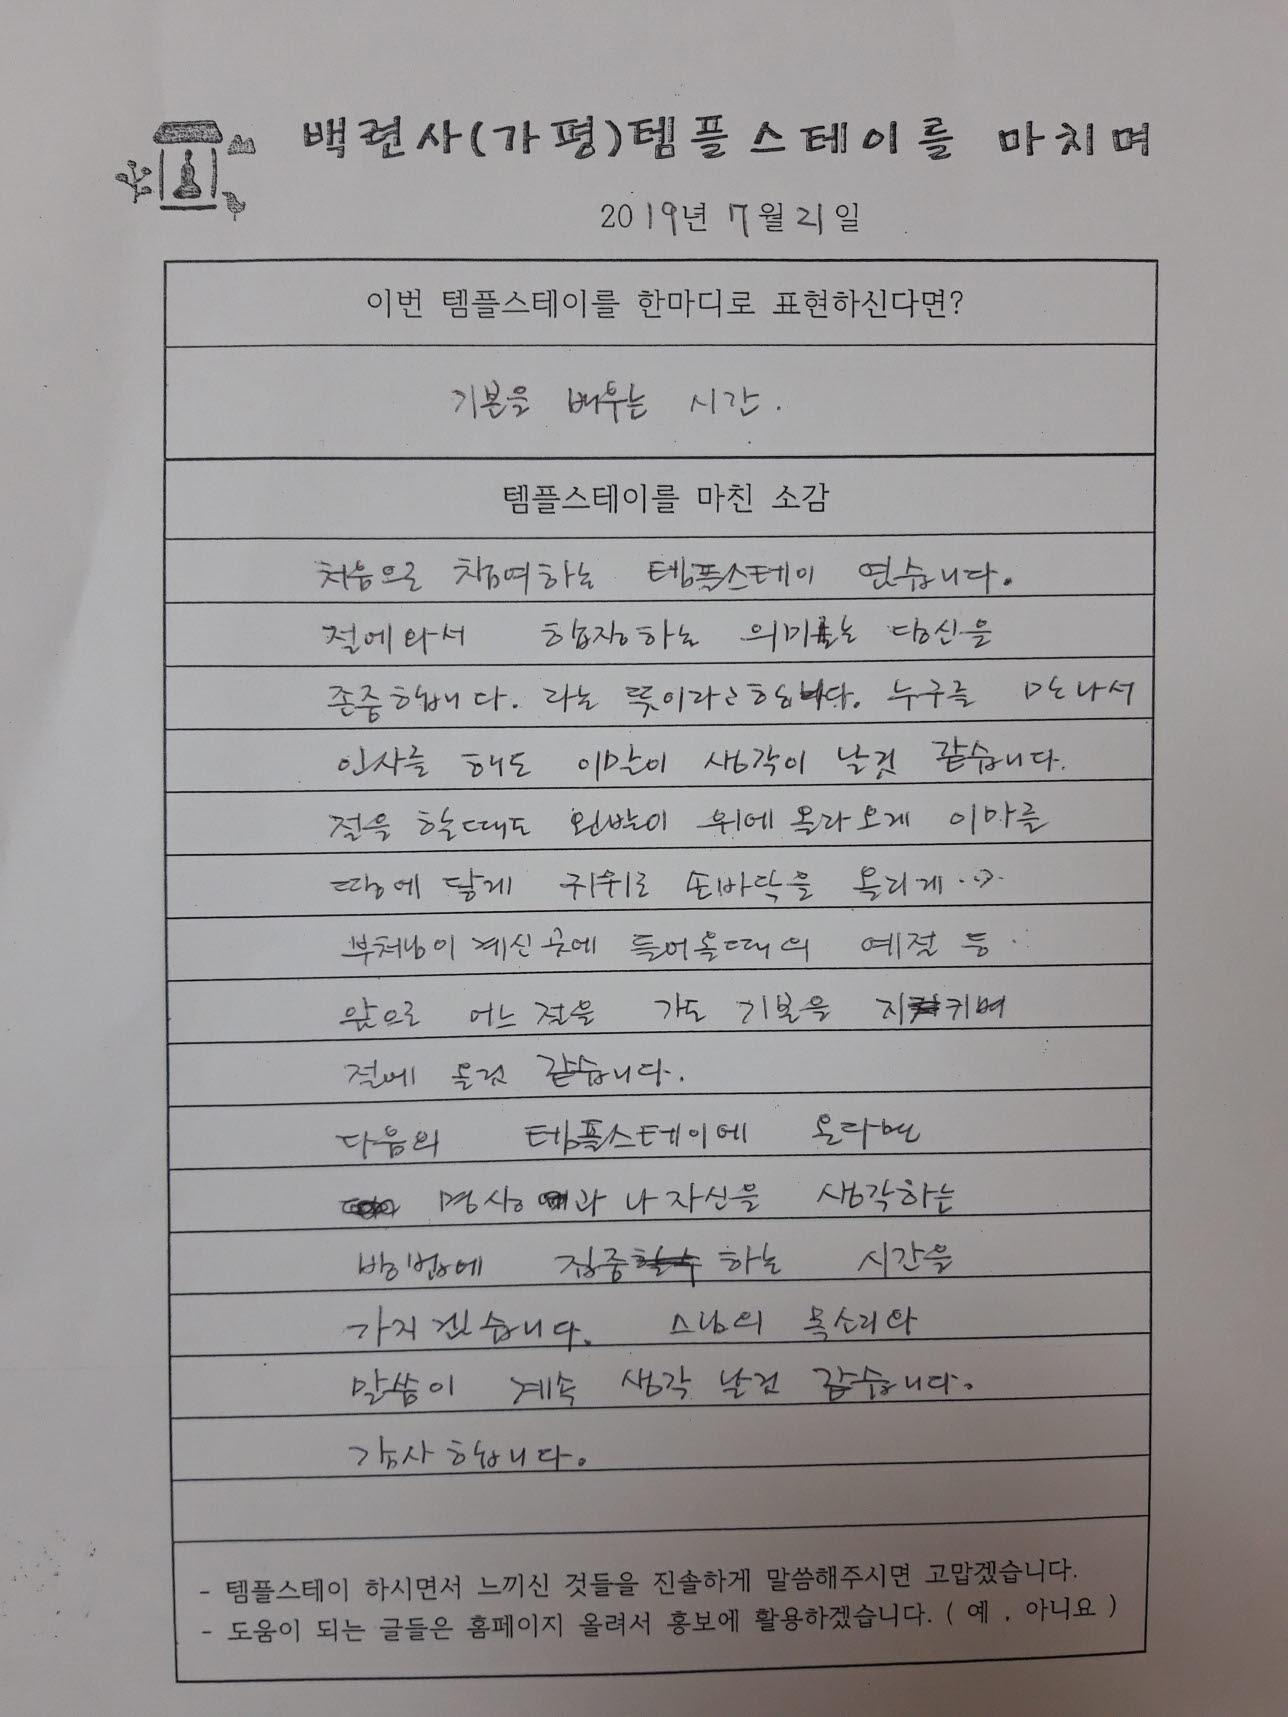 백련사(가평)템플스테이를 마치며
2019년 7월 21일
이번 템플스테이를 한마디로 표현하신다면?
기본을 배우는 시간.
템플스테이를 마친 소감
처음으로 참여하는 템플스테이 였습니다.
절에와서 합장하는 의미는 당신을
존중합니다. 라는 뜻이라고합니다. 누구를 만나서
인사를 해도 이말이 생각이 날것 같습니다.
절을 할때도 왼발이 위에 올라오게 이마를
땅에 닿게 귀위로 손바닥을 올리게...
부처님이 계신 곳에 들어올때의 예절 등.
앞으로 어느 절을 가도 기본을 지키며
절에 올것 같습니다.
다음의 템플스테이에 온다면
명상과 나 자신을 생각하는
방법에 집중 하는 시간을
가지겠습니다. 스님의 목소리와
말씀이 계속 생각 날것 같습니다.
감사합니다.
- 템플스테이 하시면서 느끼신 것들을 진솔하게 말씀해주시면 고맙겠습니다.
- 도움이 되는 글들은 홈페이지 올려서 홍보에 활용하겠습니다. ( 예 , 아니요 )